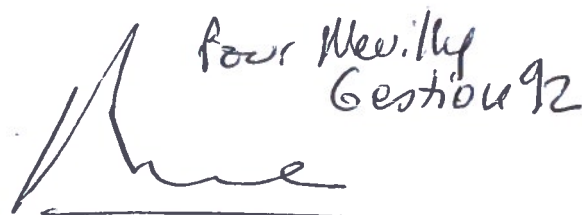 Pour Neuilly
Gestion 92